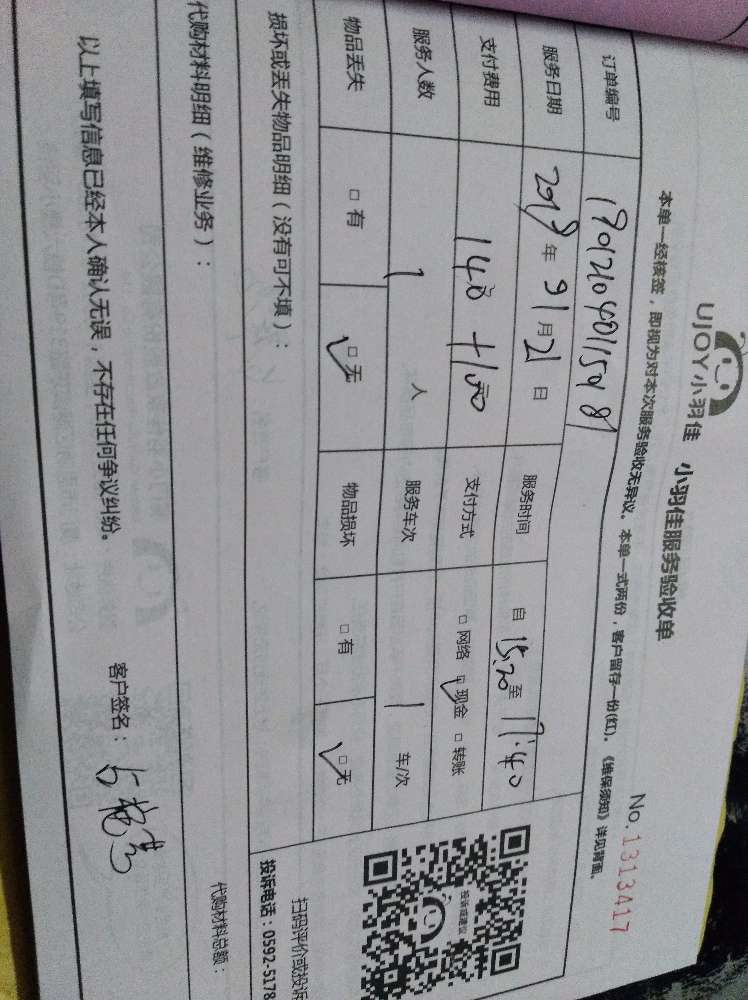 UJOY小羽佳 小羽佳服务验收单
No.1313417
本单一经核签，即视为对本次服务验收无异议。本单一式两份，客户留存一份(红)。《维保须知》详见背面。
订单编号
服务日期 2019年 月21日 服务时间 自15:20至17:40
支付费用 140+100 支付方式 □网络 ☑现金 □转账
服务人数 1人 服务车次 1车/次
物品丢失 □有 ☑无 物品损坏 □有 ☑无
损坏或丢失物品明细（没有可不填）：
投诉或建议
扫码评价或投诉
投诉电话：0592-5178
代购材料明细（维修业务）：
代购材料总额：
以上填写信息已经本人确认无误，不存在任何争议纠纷。
客户签名：